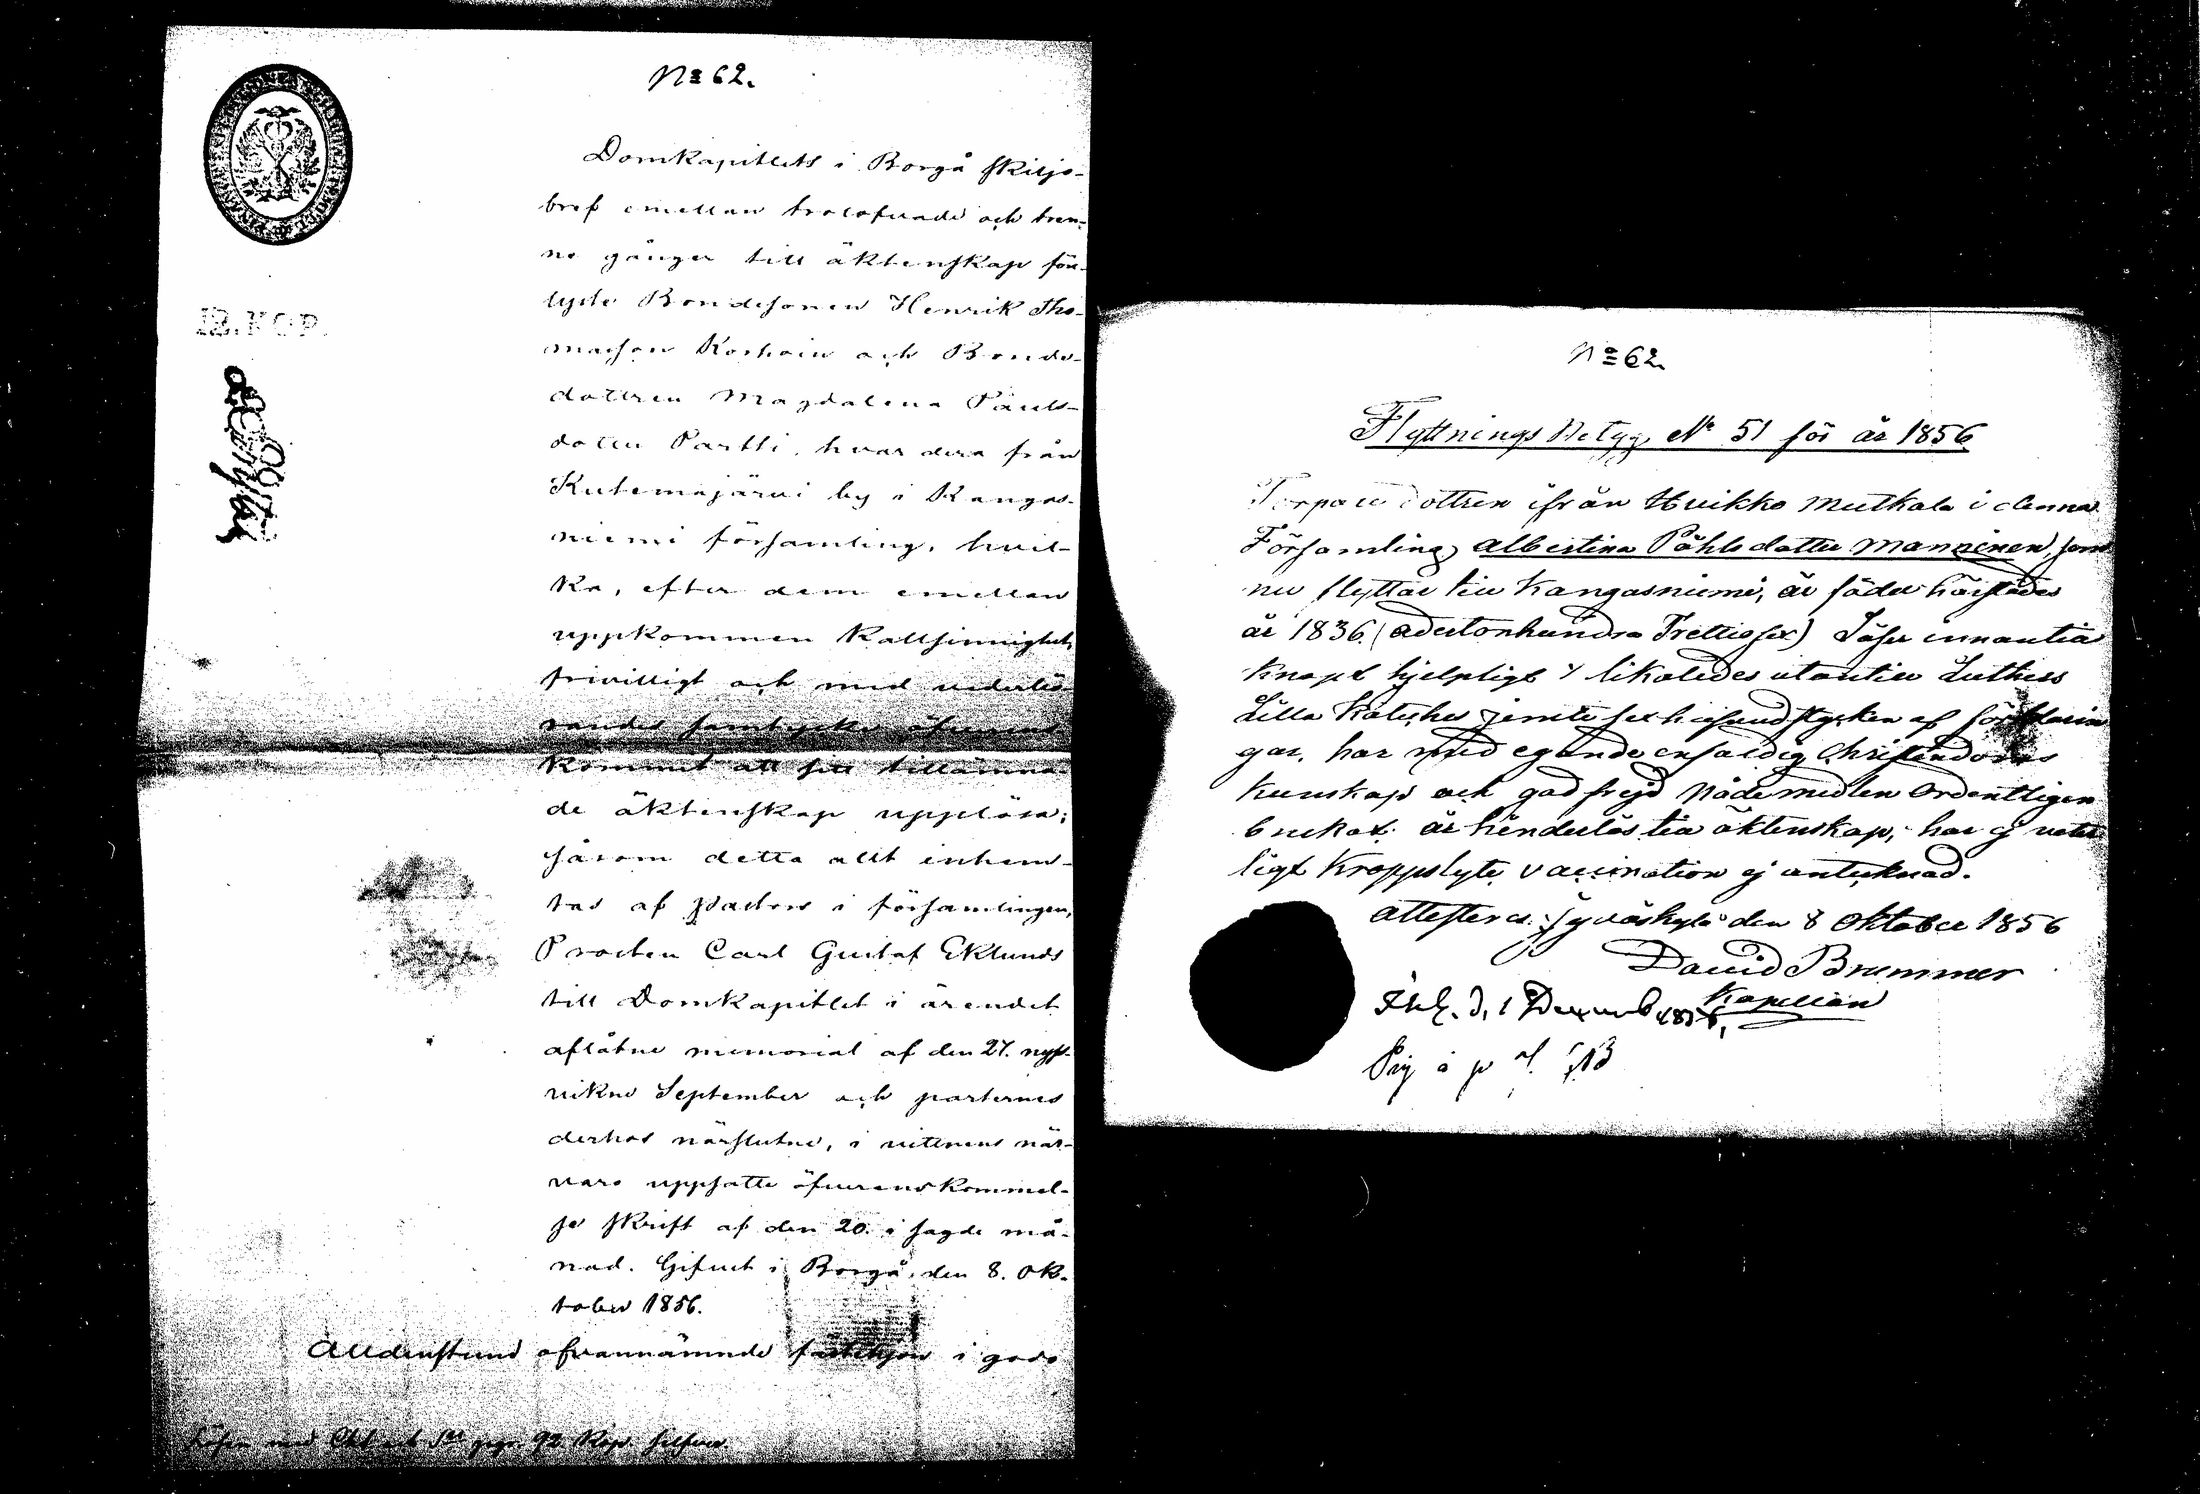 No 62.
Domkapitlets i Borgå skiljo-
bref emellan trolofvade och tren-
ne gånger till äktenskap för-
lyste Bondesonen Henrik Tho-
masson Koskoin och Bonde-
dottren Magdalena Påuls-
dotter Partti, hvardera från
Kutemajärvi by i Kangas-
niemi församling, hvil-
ka, efter dem emellan
uppkommen kallsinnighet,
frivilligt och med vederbö-
randes samtycke öfverens
kommit att sitt tillämna-
de äktenskap upplösa;
såsom detta allt inhem-
tas af Pastors i församlingen,
Prosten Carl Gustaf Eklunds
till Domkapitlet i ärendet
aflåtne memorial af den 27. nyss-
vikne September och parternes
derhos närslutne, i vittnens när-
varo uppsatte öfverenskommel-
se skrift af den 20. i sagde må-
nad. Gifvet i Borgå, den 8. Ok-
tober 1856.
Alldenstund ofvannämnde fästehjon i godo
Lösen med Chtt och 92 Kop. silfver
12.KOP.
No 62.
Flyttnings Betyg No 51 för år 1856
Torpare dottren ifrån Huikko Mutkala i denna
Församling Albertina Påhlsdotter Manninen, som
nu flyttar till Kangasniemi, är född härstädes
år 1836. (Adertonhundra Trettiosex) Läser innantill
knapt hjelpligt & likaledes utantill Luthers
Lilla Kateches jemte sex hufvudstycken af förklarin
gar, har med egande enfaldig Christendoms
kunskap och god frejd Nådemedlen Ordentligen
brukat. är hinderlös till äktenskap, har ej veter
ligt Kroppslyte, vaccination ej antecknad.
Attesteras. Jyväskylä den 8 Oktober 1856
David Brummer
Kapellan
d. 1 Decemb 1856,